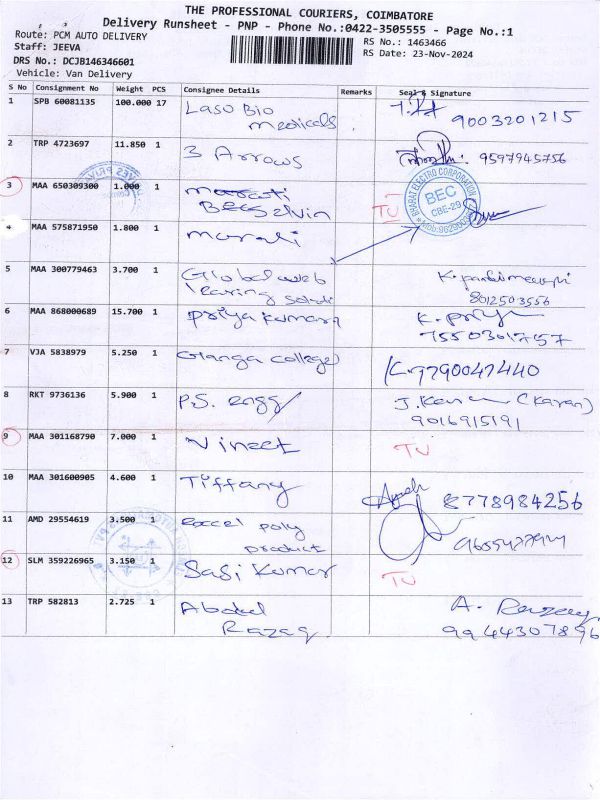 THE PROFESSIONAL COURIERS, COIMBATORE
Delivery Runsheet - PNP - Phone No.:0422-3505555 - Page No.:1
Route: PCM AUTO DELIVERY
Staff: JEEVA
RS No.: 1463466
RS Date: 23-Nov-2024
DRS No.: DCJB146346601
Vehicle: Van Delivery
S No Consignment No Weight PCS Consignee Details Remarks Seal & Signature
1 SPB 60081135 100.000 17 Laso Bio
medicals 9003201215
2 TRP 4723697 11.850 1 3 Arrows 9597945756
3 MAA 650309300 1.000 1
Selvin TU
BHARAT ELECTRO CORPORATION
BEC
CBE-29
4 MAA 575871950 1.800 1 murali
5 MAA 300779463 3.700 1 Global web
8012503556
6 MAA 868000689 15.700 1 Priya Kumar K. Priya
7550301757
7 VJA 5838979 5.250 1 Ganga college 9790047440
8 RKT 9736136 5.900 1 P.S. engg J. (Karan)
9016915191
9 MAA 301168790 7.000 1 Vineet TU
10 MAA 301600905 4.600 1 Tiffany 8778984256
11 AMD 29554619 3.500 1 excel poly
product
12 SLM 359226965 3.150 1 Sasi Kumar TU
13 TRP 582813 2.725 1 Abdul A.
Razaq 9944307896